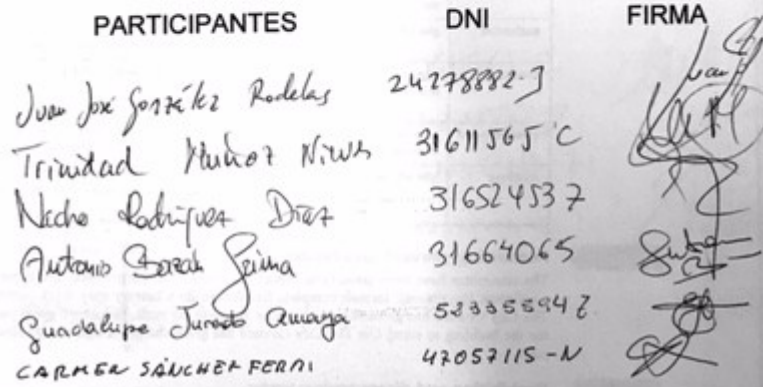 PARTICIPANTES DNI FIRMA
Juan José González Rodelas 24278882-J
Trinidad Muñoz 31611565 C
Nacho Rodríguez Díaz 31652453 7
Antonio Bazán 31664065
Guadalupe Jurado Amaya
CARMEN SÁNCHEZ 47057115-N